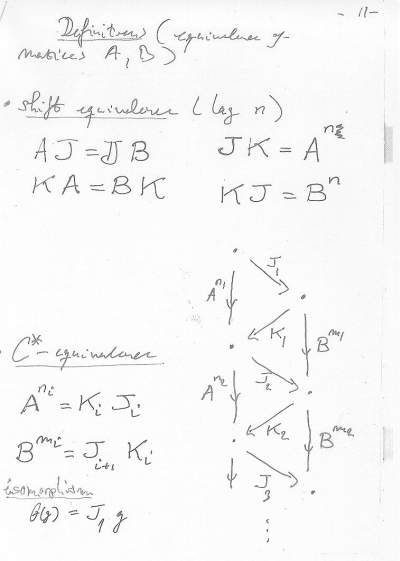 - 11 -
Definitions (equivalence of
matrices A, B)
• shift equivalence (lag n)
AJ = JB JK = Aⁿ
KA = BK KJ = Bⁿ
J₁
A^{n₁}
K₁ B^{m₁}
C*-equivalence
J₂
A^{n_i} = K_i J_i
A^{n₂}
K₂ B^{m₂}
B^{m_i} = J_{i+1} K_i
J₃
isomorphism
θ(g) = J₁ g